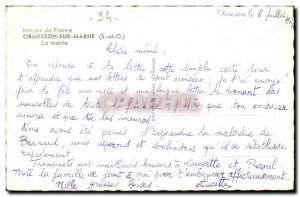 94
Ormesson le 8 juillet
Images de France
ORMESSON-SUR-MARNE (S.-et-O.)
La mairie
Chère mémé,
En réponse à ta lettre cette simple carte pour
t'apprendre que nos lettres se sont croisées. Je t'ai envoyé
pour ta fête une carte et une longue lettre te donnant des
nouvelles de toute
suivre et que tu les
Nous avons été peinés d'apprendre la maladie de
Bernard, nous espérons et souhaitons qu'il se rétablisse
rapidement.
Transmets nos meilleurs baisers à Louisette et Raoul
Toute la famille se joint à moi pour t'embrasser affectueusement.
Mille grosses bises. Lucette